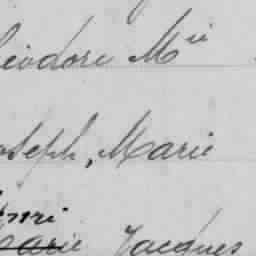 éodore M^ie
oseph, Marie
enri
Marie Jacques